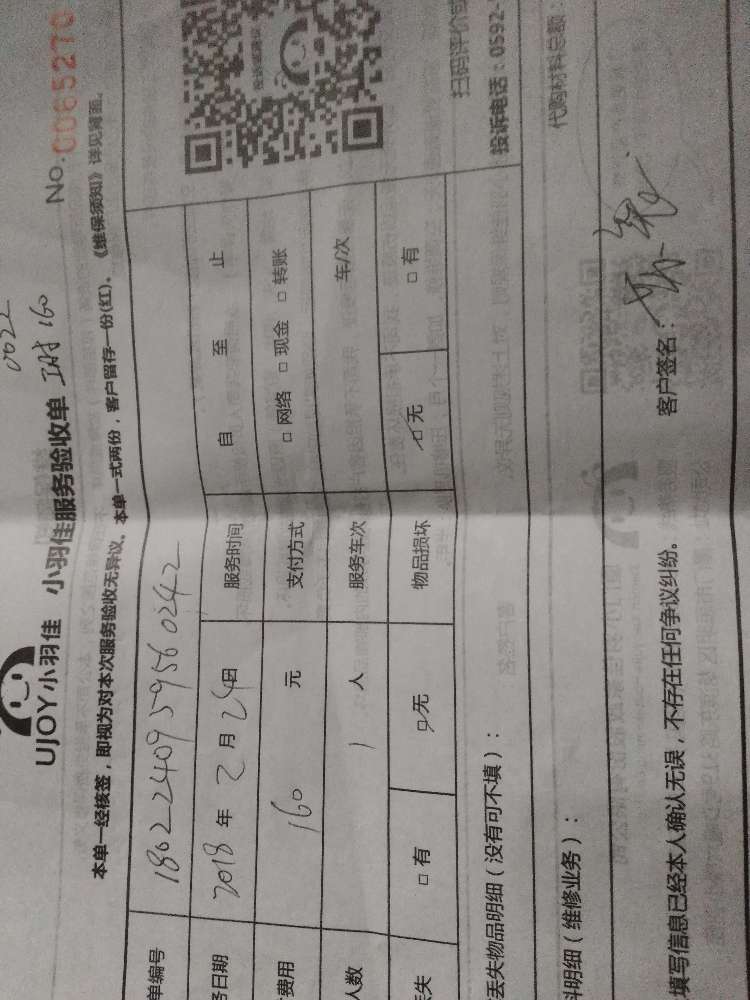 0022
UJOY小羽佳 小羽佳服务验收单 工时160 No.0065270
本单一经核签，即视为对本次服务验收无异议。本单一式两份，客户留存一份(红)。《维保须知》详见背面。
单编号 180224095956 0242
务日期 2018 年 2 月 24 日 服务时间 自 至 止
费用 160 元 支付方式 □ 网络 □ 现金 □ 转账
人数 1 人 服务车次 车/次
丢失 □ 有 □ 无 物品损坏 □ 无 □ 有
扫码评价或
投诉电话：0592-
丢失物品明细（没有可不填）：
料明细（维修业务）： 代购材料总额：
填写信息已经本人确认无误，不存在任何争议纠纷。 客户签名：